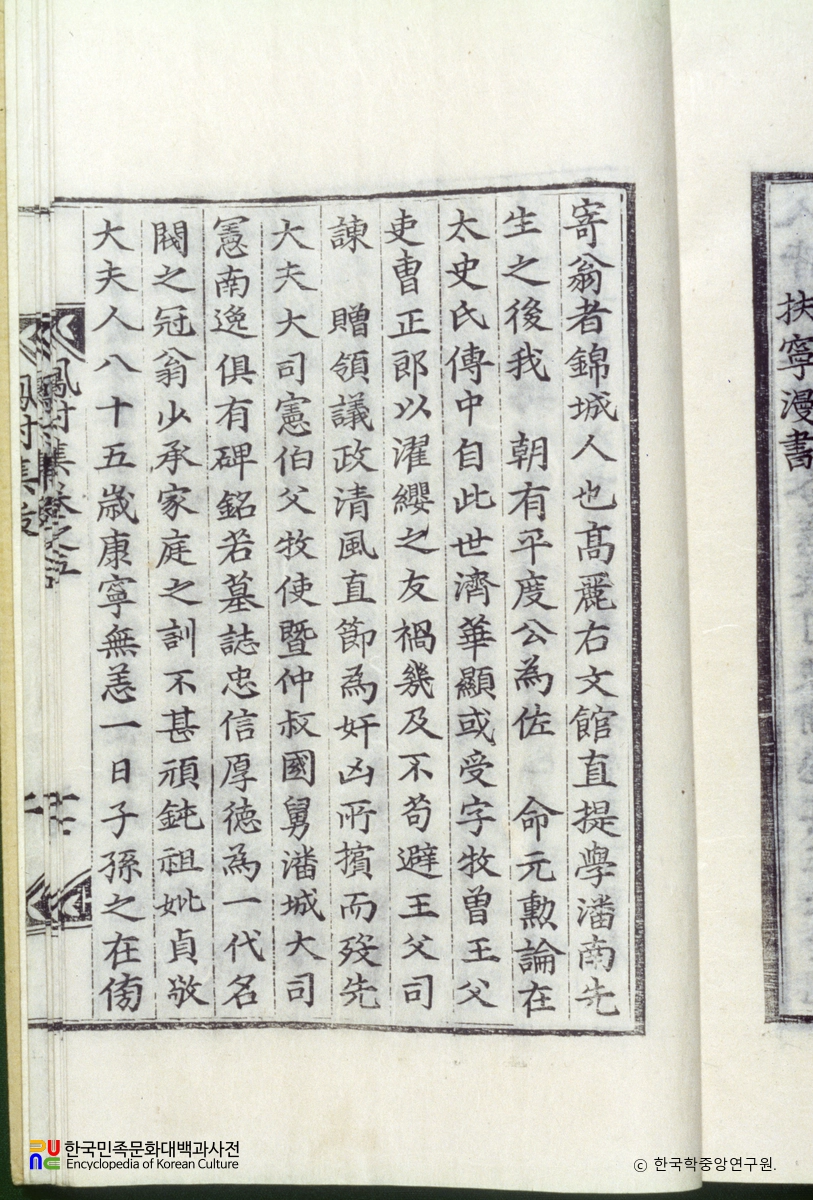 扶寧漫書
寄翁者錦城人也高麗右文館直提學潘南先
生之後我 朝有平度公為佐 命元勲論在
太史氏傳中自此世濟華顯或受字牧曽王父
吏曺正郎以濯纓之友禍幾及不苟避王父司
諫 贈領議政清風直節為奸凶所擯而殁先
大夫大司憲伯父牧使曁仲叔國舅潘城大司
憲南逸俱有碑銘若墓誌忠信厚徳為一代名
閥之冠翁少承家庭之訓不甚頑鈍祖妣貞敬
大夫人八十五歳康寧無恙一日子孫之在傍
한국민족문화대백과사전
Encyclopedia of Korean Culture
ⓒ 한국학중앙연구원.